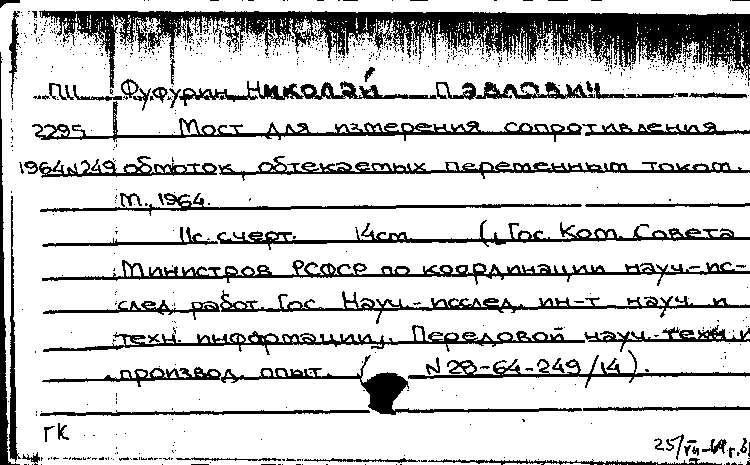 ПII Фуфурин Николай Павлович
2295 Мост для измерения сопротивления
1964N249 обмоток, обтекаемых переменным током.
М., 1964.
11с. с черт. 14см (Гос. Ком. Совета
Министров РСФСР по координации науч.-ис-
след. работ. Гос. Науч.-исслед. ин-т науч. и
техн. информации. Передовой науч.-техн. и
производ. опыт. N 28-64-249/14).
ГК